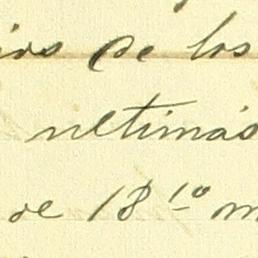 ios de los
ultimás
de 18 1º m